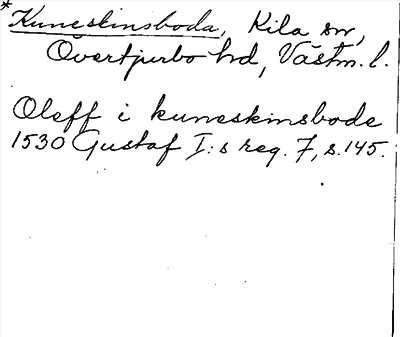 *Kuneskinsboda, Kila sn,
Övertjurbo hd, Västm. l.
Oleff i kuneskinsbode
1530 Gustaf I:s reg. 7, s. 145.